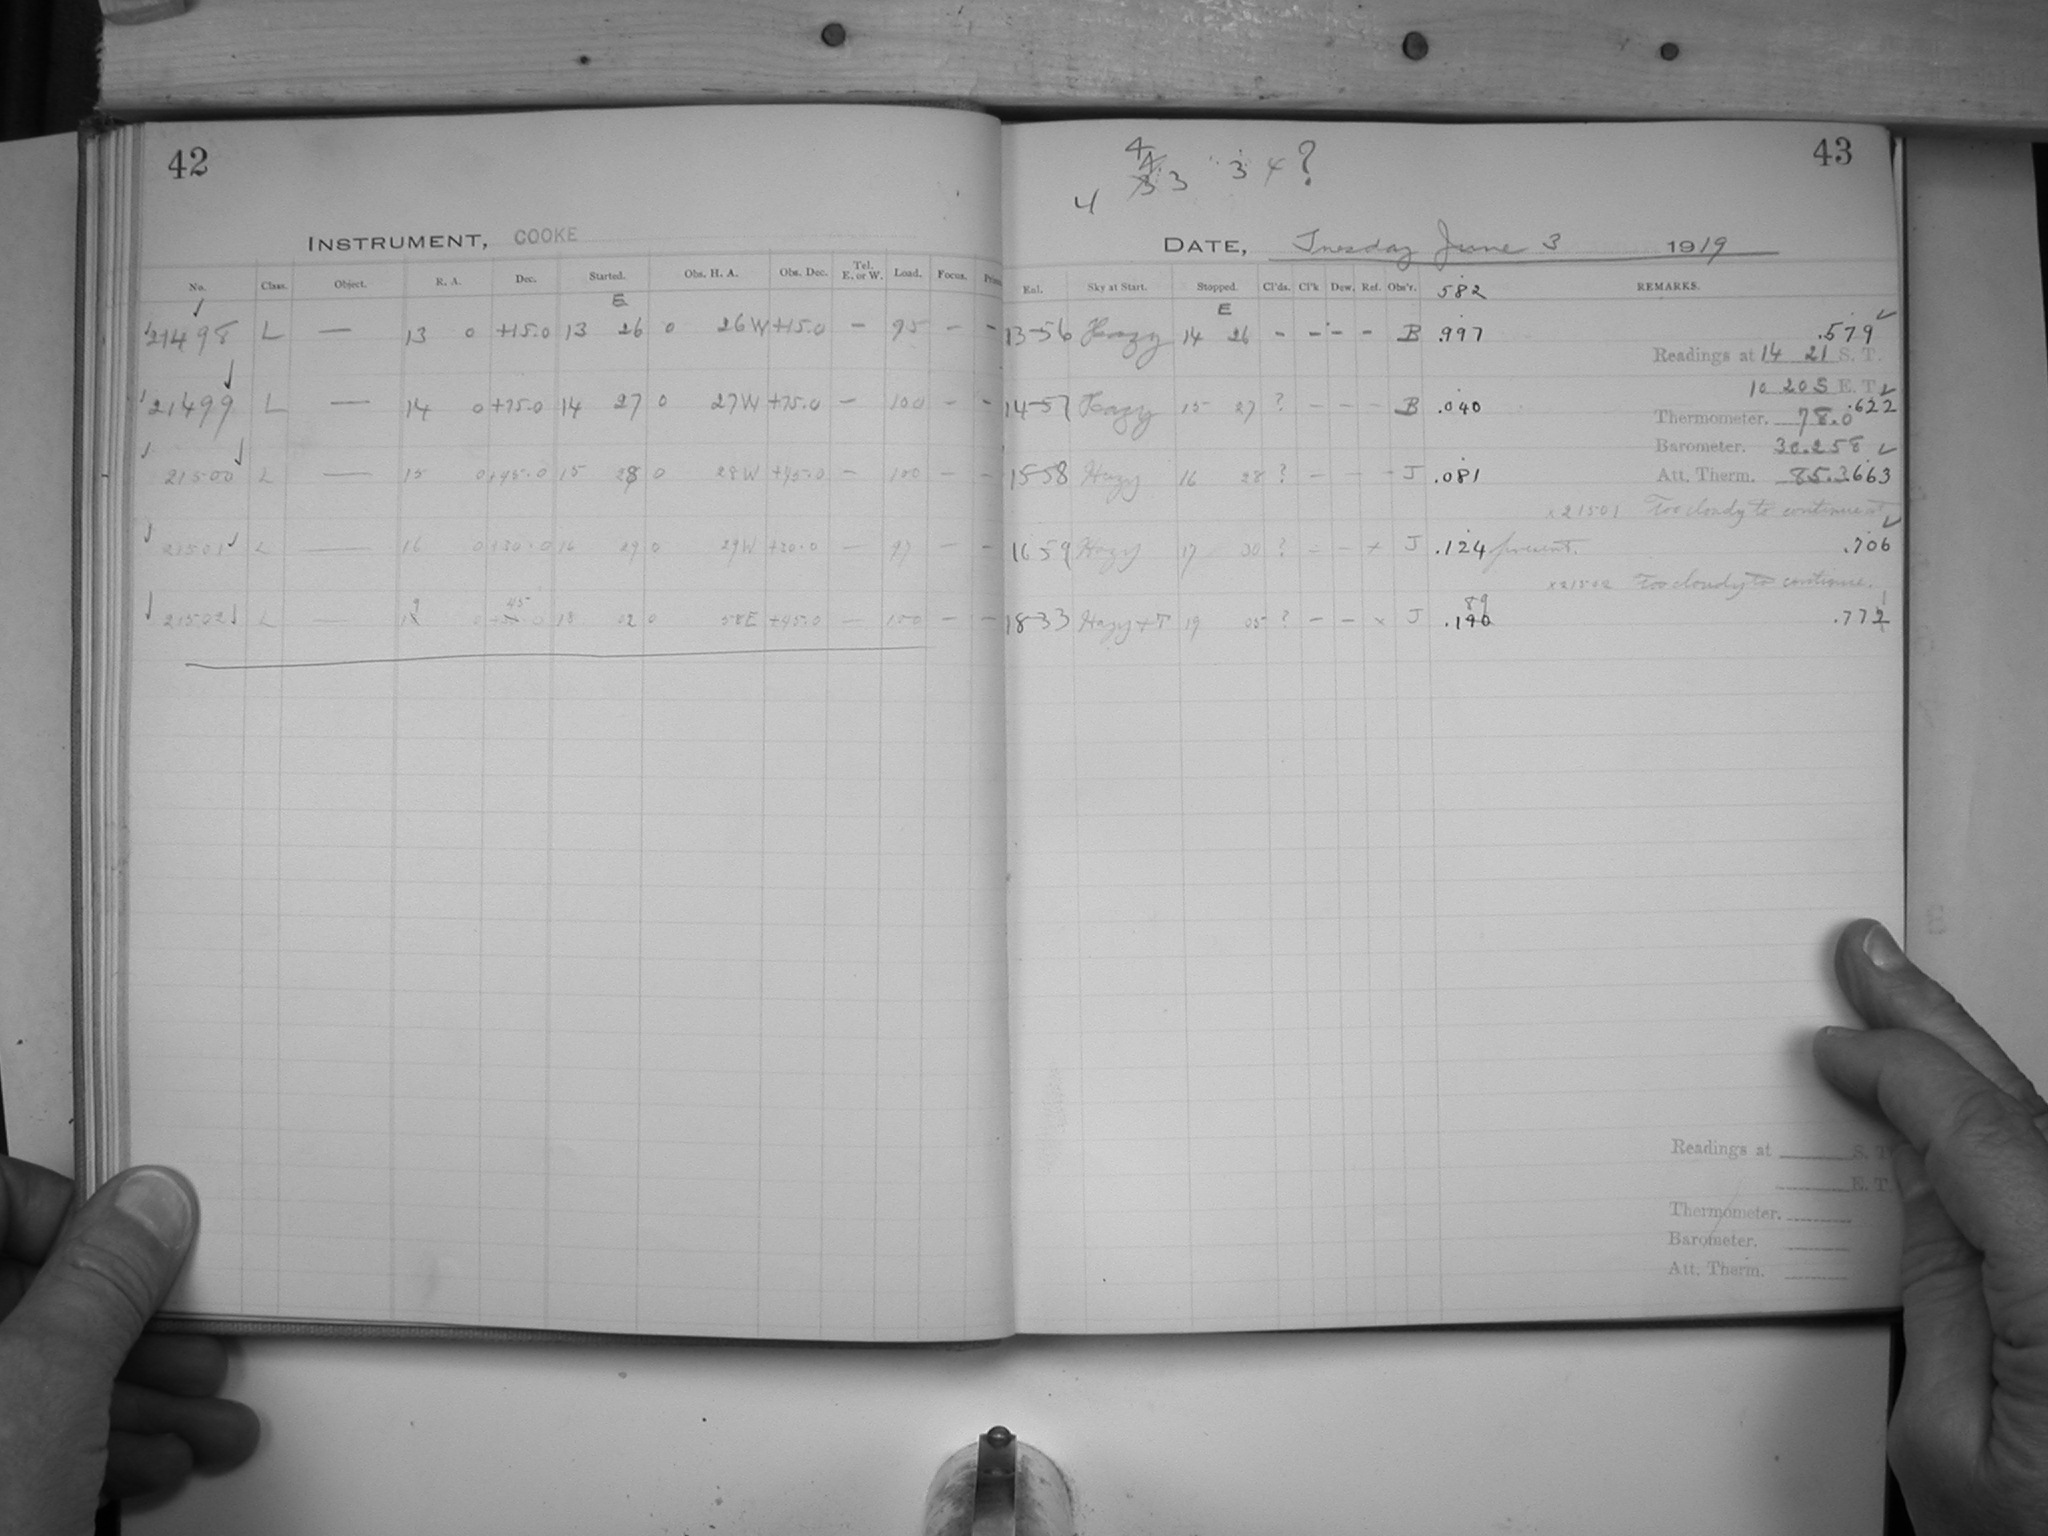 42
INSTRUMENT, COOKE
No. Class. Object. R. A. Dec. Started. Obs. H. A. Obs. Dec. Tel. E. or W. Load. Focus.
E
21498 L — 13 0 +15.0 13 26 0 26W +15.0 — 95 — —
21499 L — 14 0 +75.0 14 27 0 27W +75.0 — 100 — —
21500 L — 15 0 +45.0 15 28 0 28W +45.0 — 100 — —
21501 L — 16 0 +30.0 16 29 0 29W +30.0 — 97 — —
9 45
21502 L — 0 18 02 0 58E +45.0 — 100 — —
43
4
4
4 3 3 3 4 ?
DATE, Tuesday June 3 1919
Exl. Sky at Start. Stopped. Cl'ds. Cl'k Dew. Ref. Obs'r. 582 REMARKS.
E
13-56 Hazy 14 26 - - - - B .997 .579
Readings at 14 21 S. T.
10 20 S E. T.
14-57 Hazy 15 27 ? - - - B .040 .622
Thermometer. 78.0
Barometer. 30.258
15 58 Hazy 16 28 ? - - - J .081 .663
Att. Therm. 85.3
x21501 Too cloudy to continue at
16 59 Hazy 17 30 ? - - + J .124 present. .706
x21502 Too cloudy to continue.
89
18-33 Hazy + T 19 05 ? - - x J .190 .772
Readings at S. T.
E. T.
Thermometer.
Barometer.
Att. Therm.